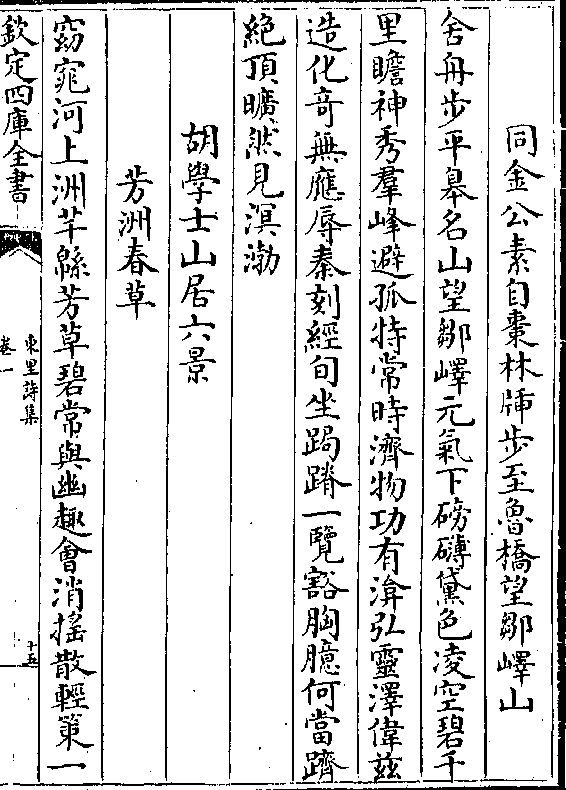 同金公素自棗林牐步至魯橋望鄒嶧山
舎舟步平皋名山望鄒嶧元氣下磅礴黛色凌空碧千
里瞻神秀羣峰避孤特常時濟物功有渰弘靈澤偉兹
造化竒無應辱秦刻經旬坐跼蹐一覽豁胸臆何當躋
絶頂曠然見溟渤
胡學士山居六景
芳洲春草
窈窕河上洲芊緜芳草碧常與幽趣會消摇散輕策一
欽定四庫全書
東里詩集
卷一
十五